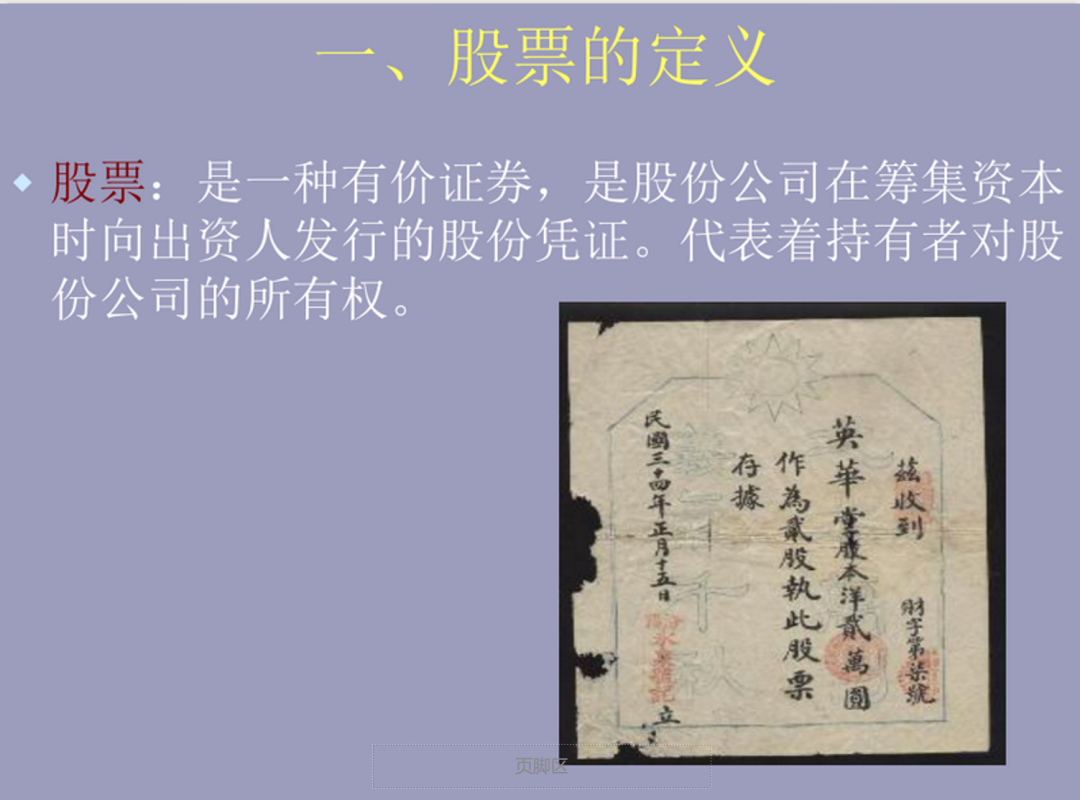 一、股票的定义
股票：是一种有价证券，是股份公司在筹集资本
时向出资人发行的股份凭证。代表着持有者对股
份公司的所有权。
茲收到
財字第柒號
英華堂股本洋貳萬圓
作為貳股執此股票
存據
民國三十四年正月十五日
立
页脚区